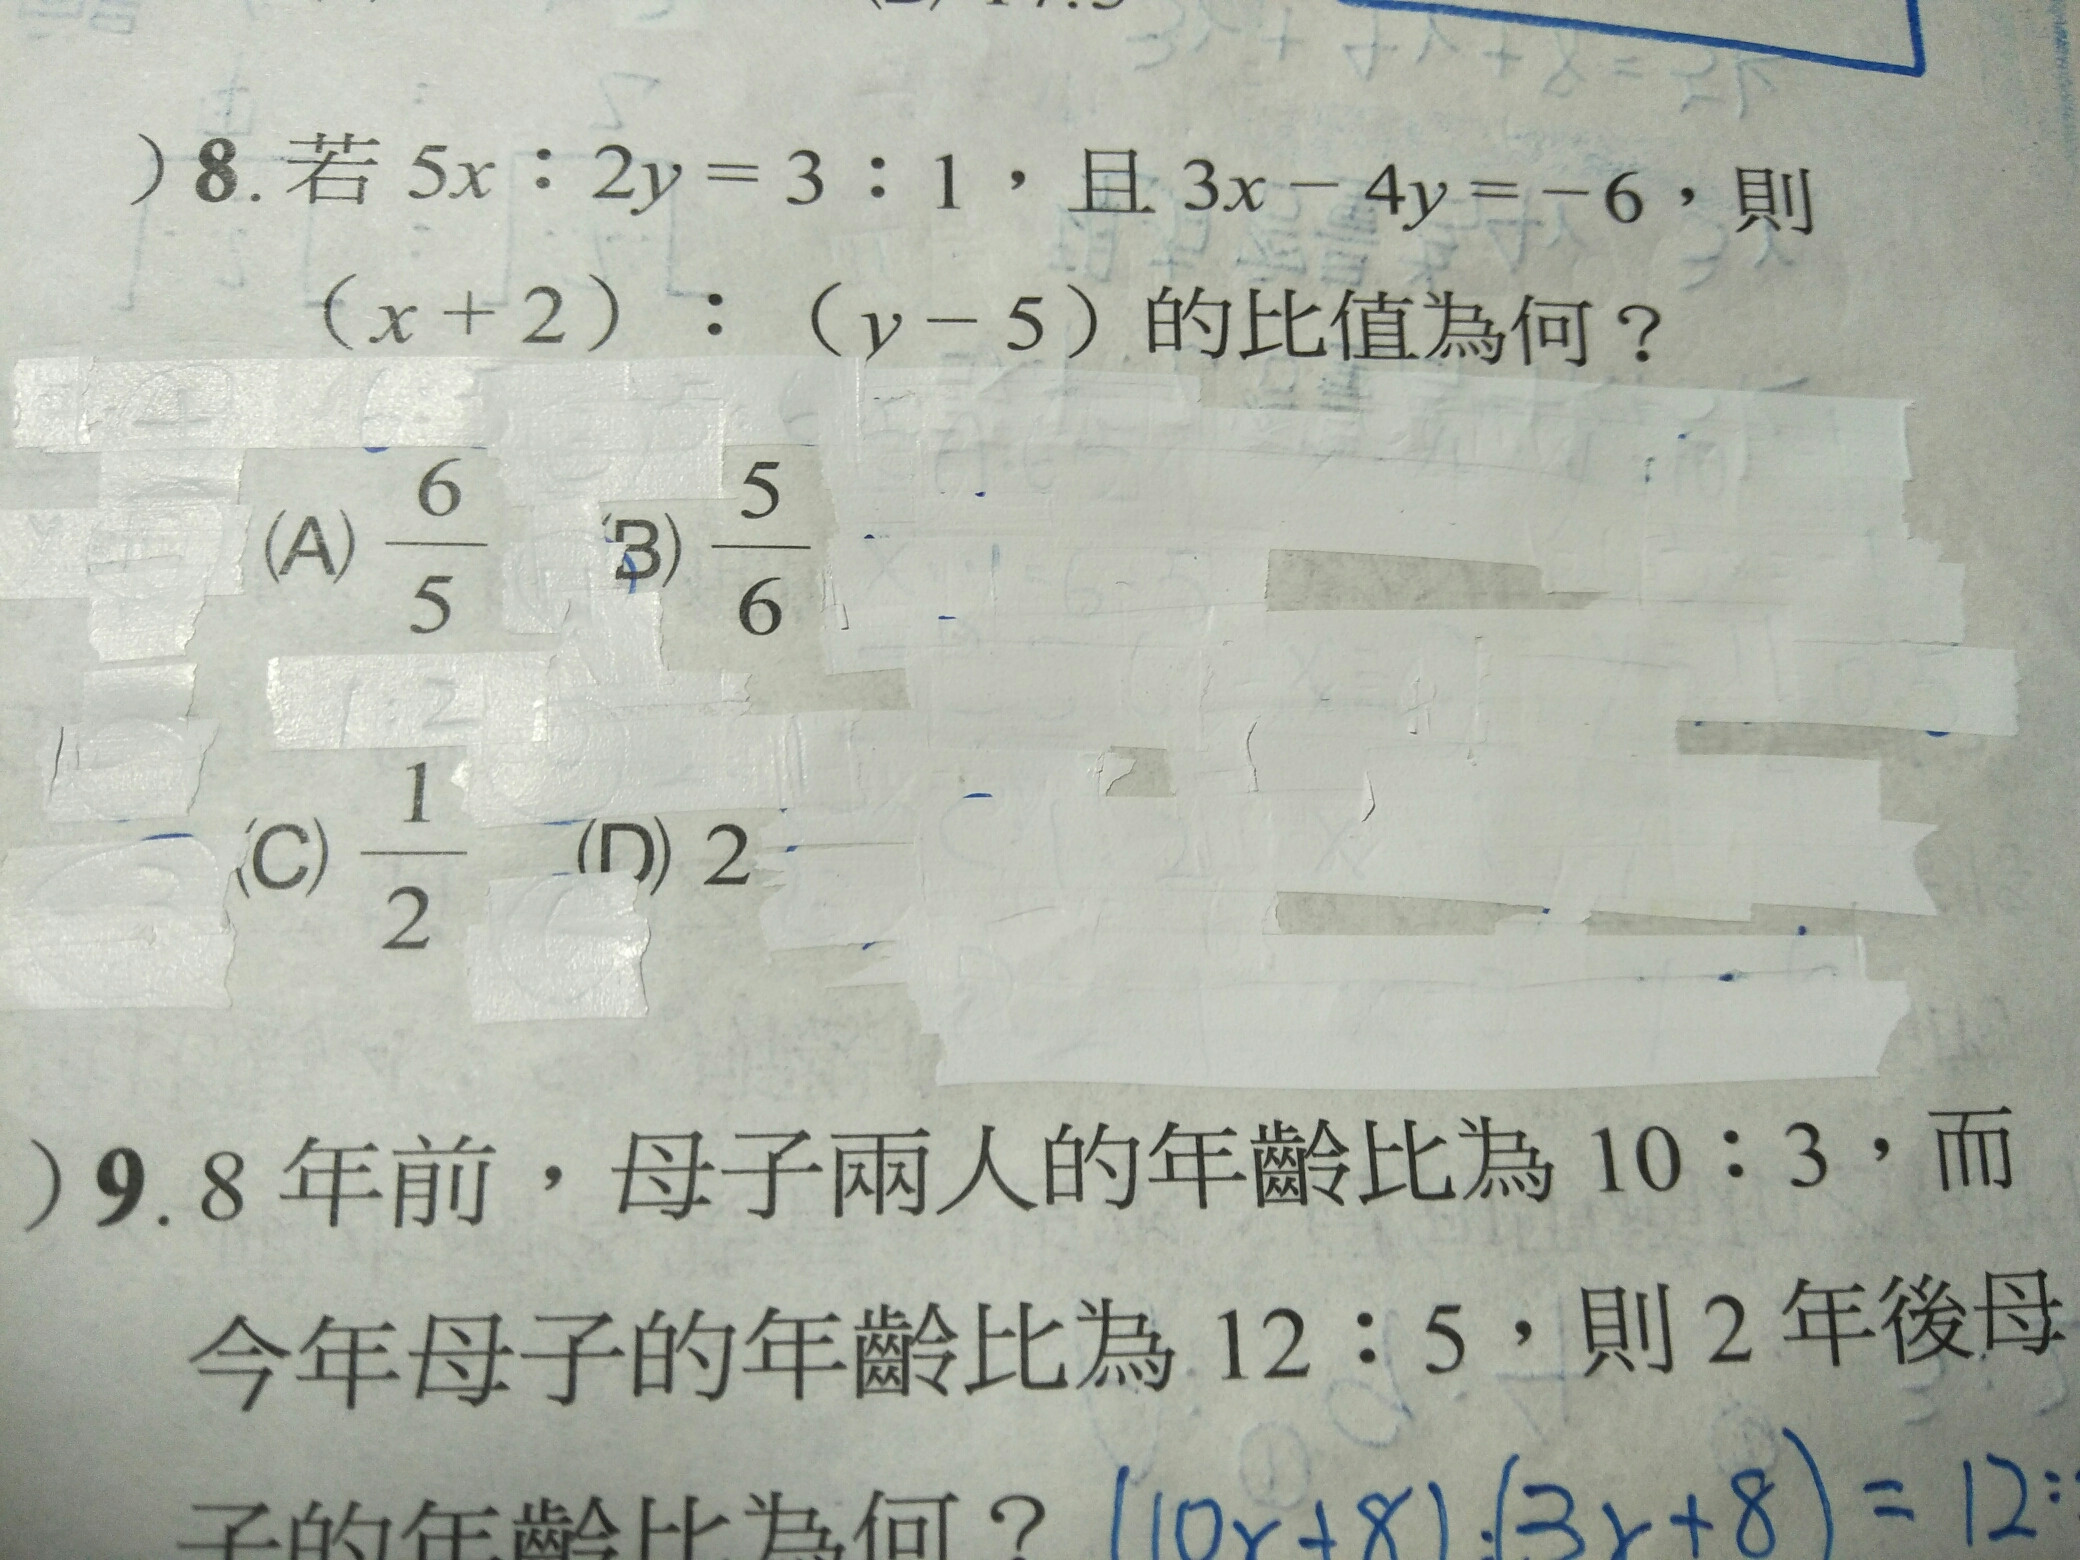 )8. 若 5x：2y = 3：1，且 3x − 4y = −6，則
（x + 2）：（y − 5）的比值為何？
(A) 6/5 (B) 5/6
(C) 1/2 (D) 2
)9. 8 年前，母子兩人的年齡比為 10：3，而
今年母子的年齡比為 12：5，則 2 年後母
子的年齡比為何？ (10x+8):(3x+8) = 12: